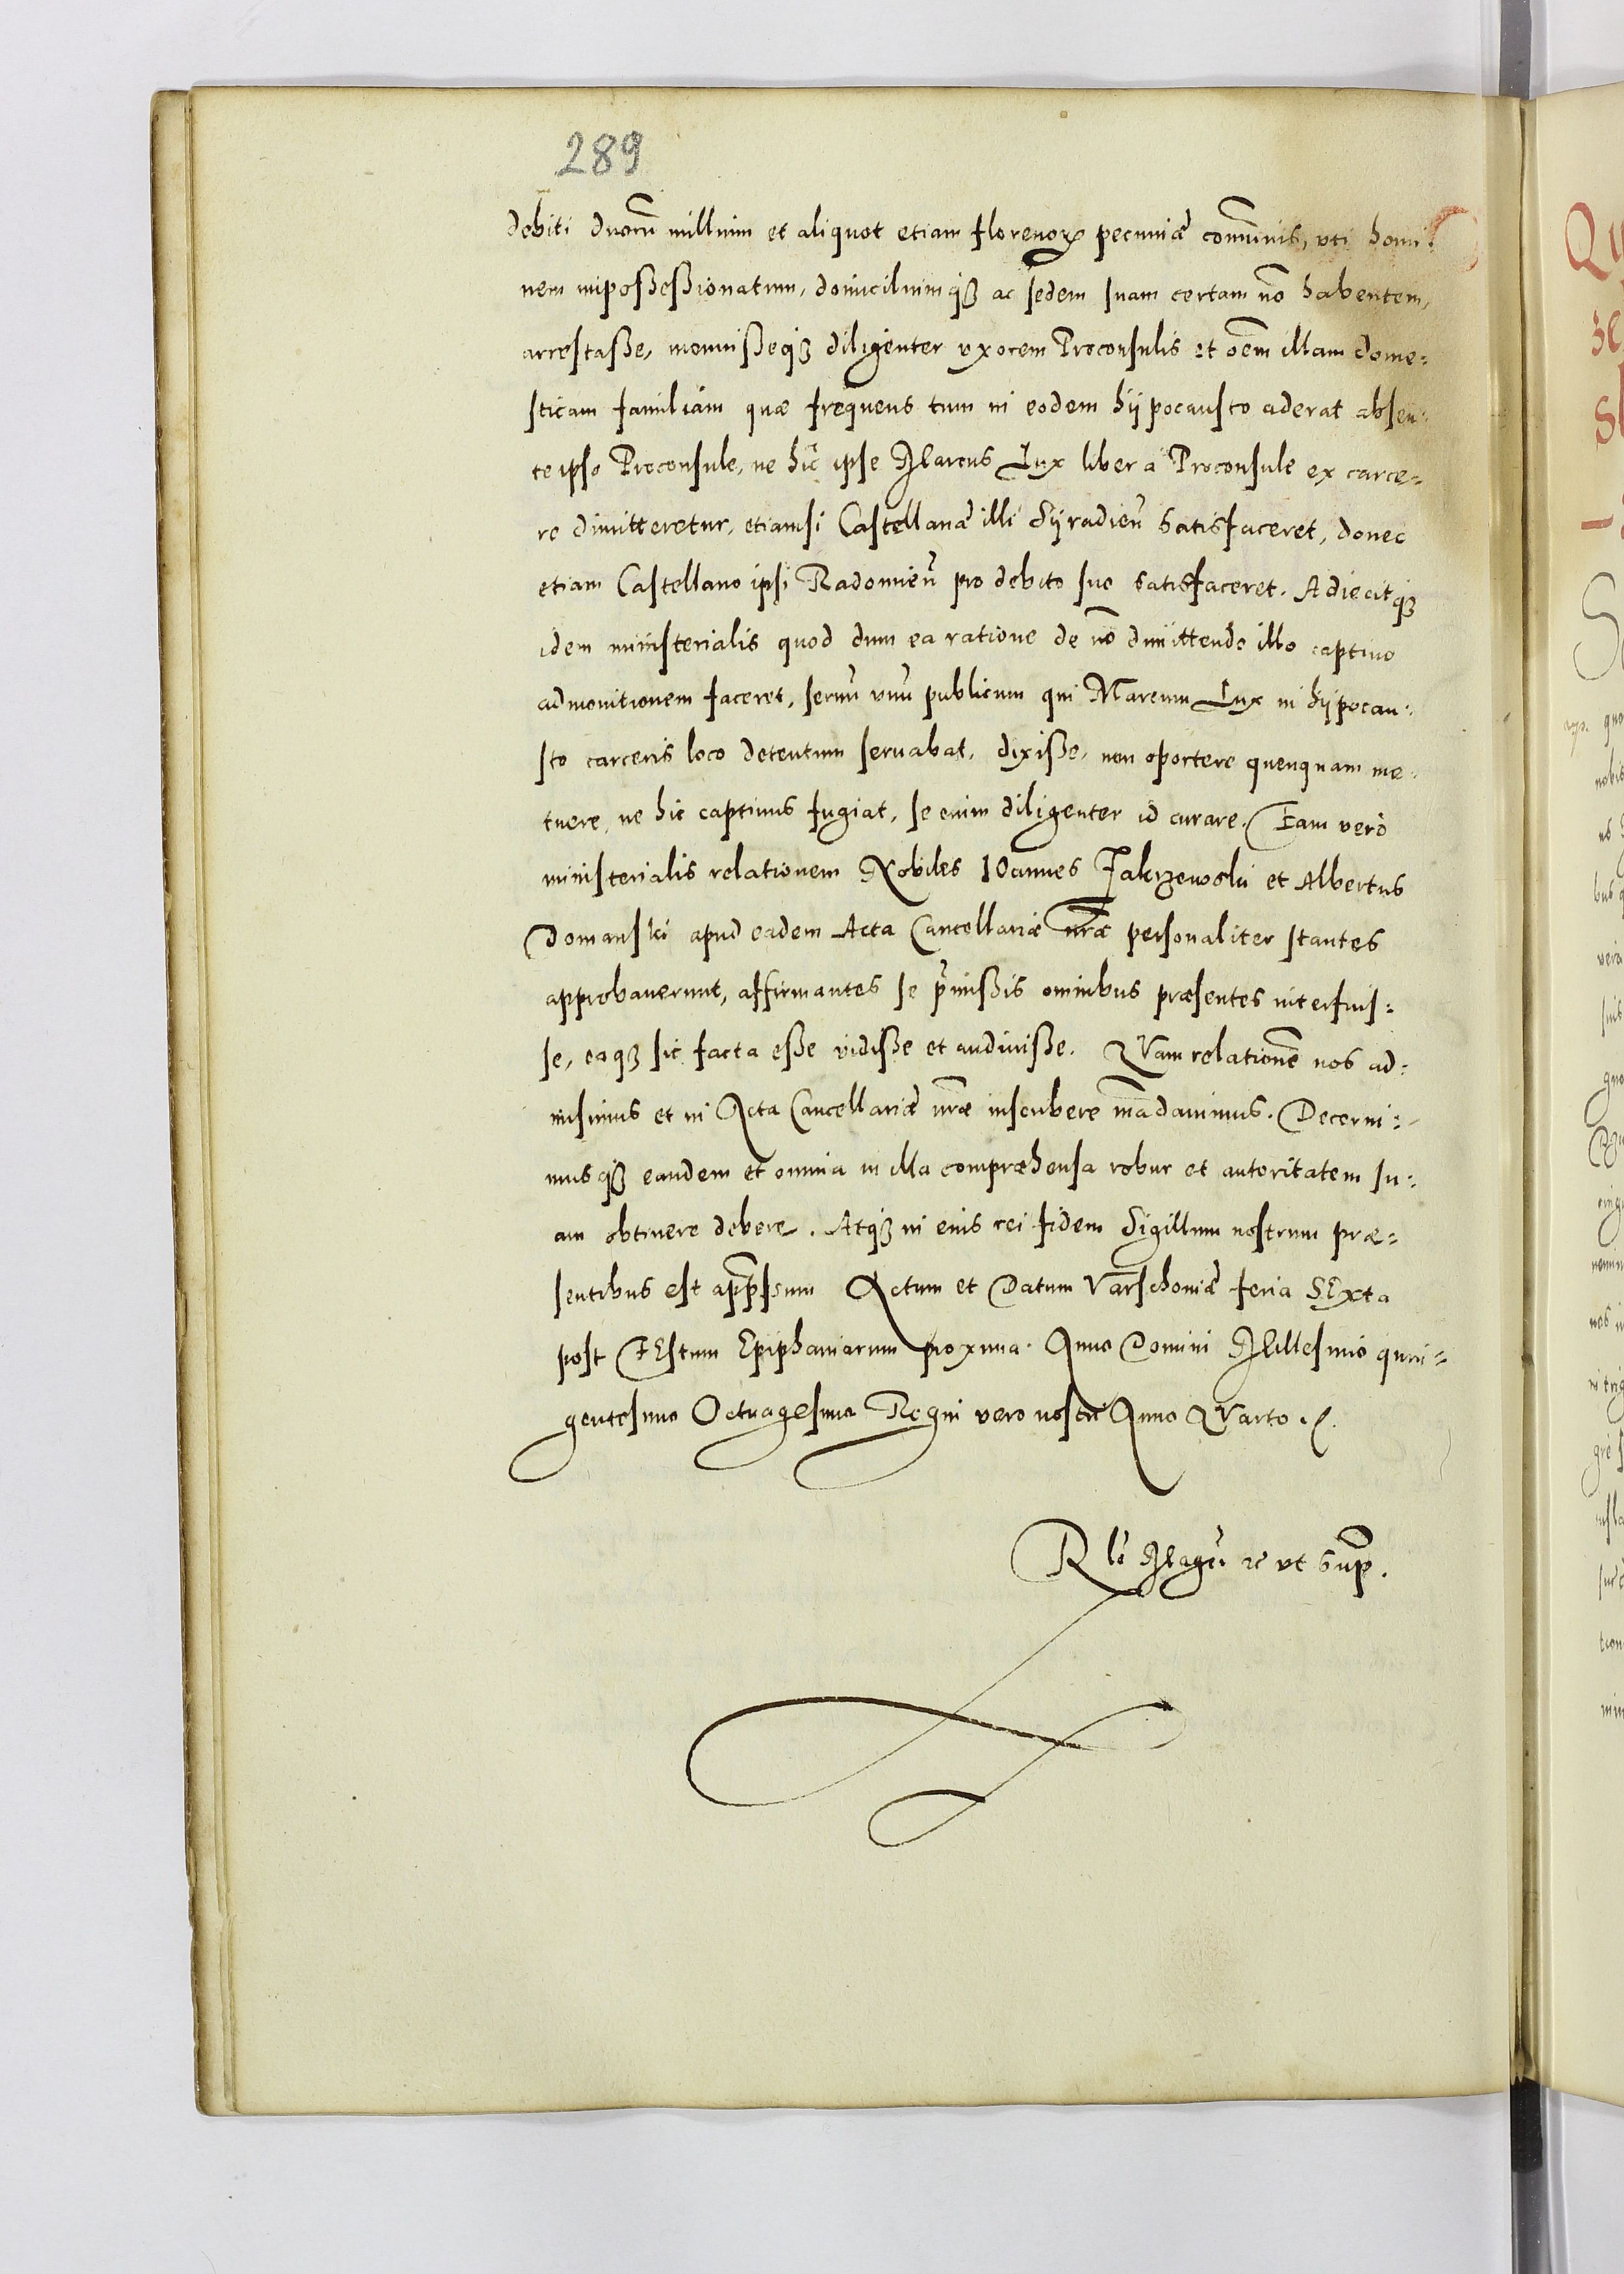 289
debiti duorũ millium et aliquot etiam florenoꝝ pecuniæ com̃unis, vti homi:
nem impoßeßionatum, domiciliumqꝫ ac sedem suam certam nõ habentem,
arrestaße, monuißeqꝫ diligenter vxorem Proconsulis et oẽm illam dome=
sticam familiam quæ frequens tum in eodem hÿpocausto aderat absen:
te ipso Proconsule, ne hic ipse Marcus Lux liber à Proconsule ex carce=
re dimitteretur, etiamsi Castellanæ illi Sÿradieñ satisfaceret, donec
etiam Castellano ipsi Radomieñ pro debito suo satisfaceret. Adiecitqꝫ
idem ministerialis quod dum ea ratione de nõ dimittendo illo captiuo
admonitionem faceret, seruũ vnũ publicum qui Marcum Lux in hÿpocau:
sto carceris loco detentum seruabat, dixiße, non oportere quenquam me:
tuere, ne hic captiuus fugiat, se enim diligenter id curare. Eam verò
ministerialis relationem Nobiles IOannes Zakrzewski et Albertus
Domanski apud eadem Acta Cancellariæ nr̃æ personaliter stantes
approbauerunt, affirmantes se p̃mißis omnibus præsentes interfuis=
se, eaqꝫ sic facta eße vidiße et audiuiße. QVam relationẽ nos ad:
misimus et in Acta Cancellariæ nr̃æ inscribere mãdauimus. Decerni:
musqꝫ eandem et omnia in illa compræhensa robur et autoritatem su:
am obtinere debere. Atqꝫ in eius rei fidem Sigillum nostrum præ=
sentibus est app̃ssum Actum et Datum Varschouiæ feria SExta
post FEstum Epiphaniarum proxima. Anno Domini Millesimo quin=
gentesimo Octuagesimo Regni vero nostri Anno QVarto.
ut sup̃.